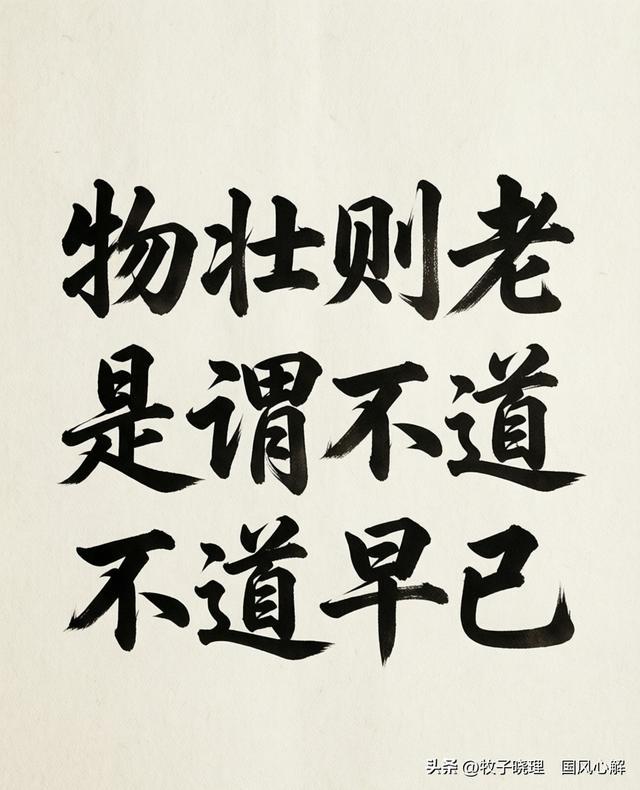 物壮则老
是谓不道
不道早已
头条 @牧子晓理 国风心解